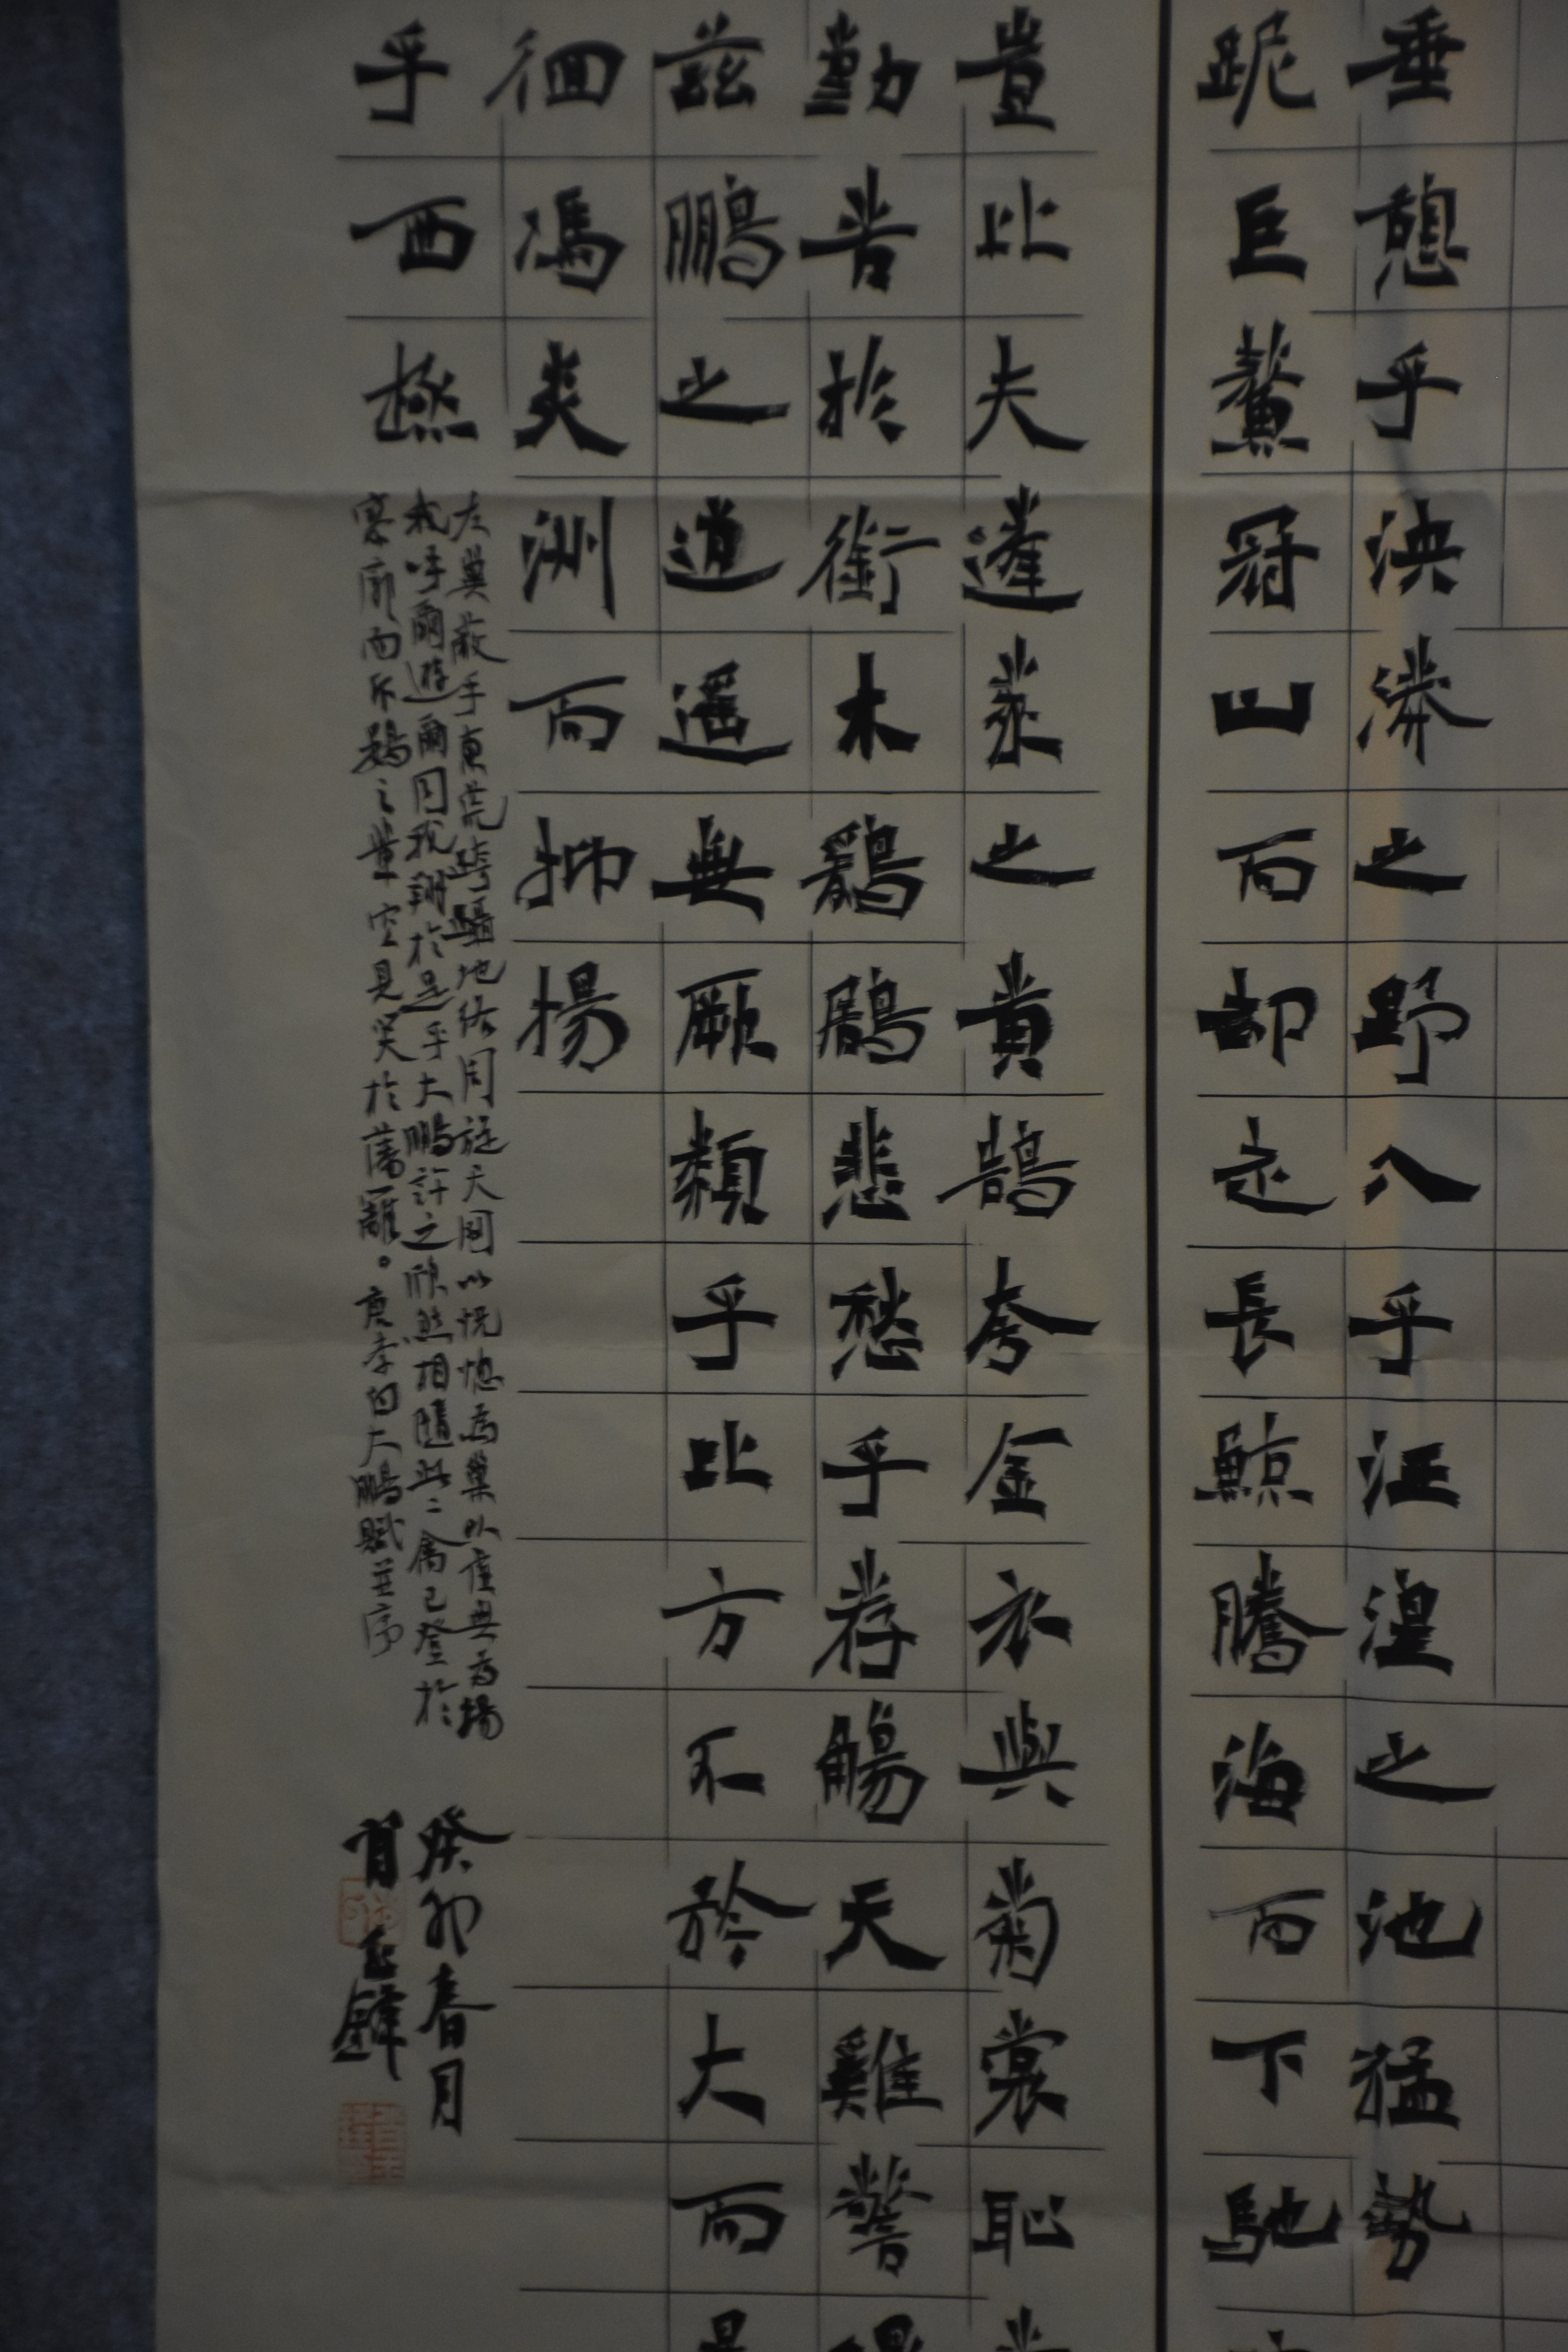 垂憩乎泱漭之野入乎汪湟之池猛勢
跜巨鰲冠山而却走長鯨騰海而下馳
豈比夫蓬萊之黃鵠夸金衣與菊裳恥
勤苦於銜木鶢鶋悲愁乎荐觴天雞警
兹鵬之逍遥無厥類乎比方不矜大而
徊馮炎洲而抑揚
乎西極
左翼蔽乎東荒跨躡地絡周旋天綱以恍惚為巢以虛無為場
我呼爾遊爾同我翔於是乎大鵬許之欣然相隨此二禽已登於
寥廓而斥鷃之輩空見笑於藩籬。唐李白大鵬賦並序
癸卯春月
肖